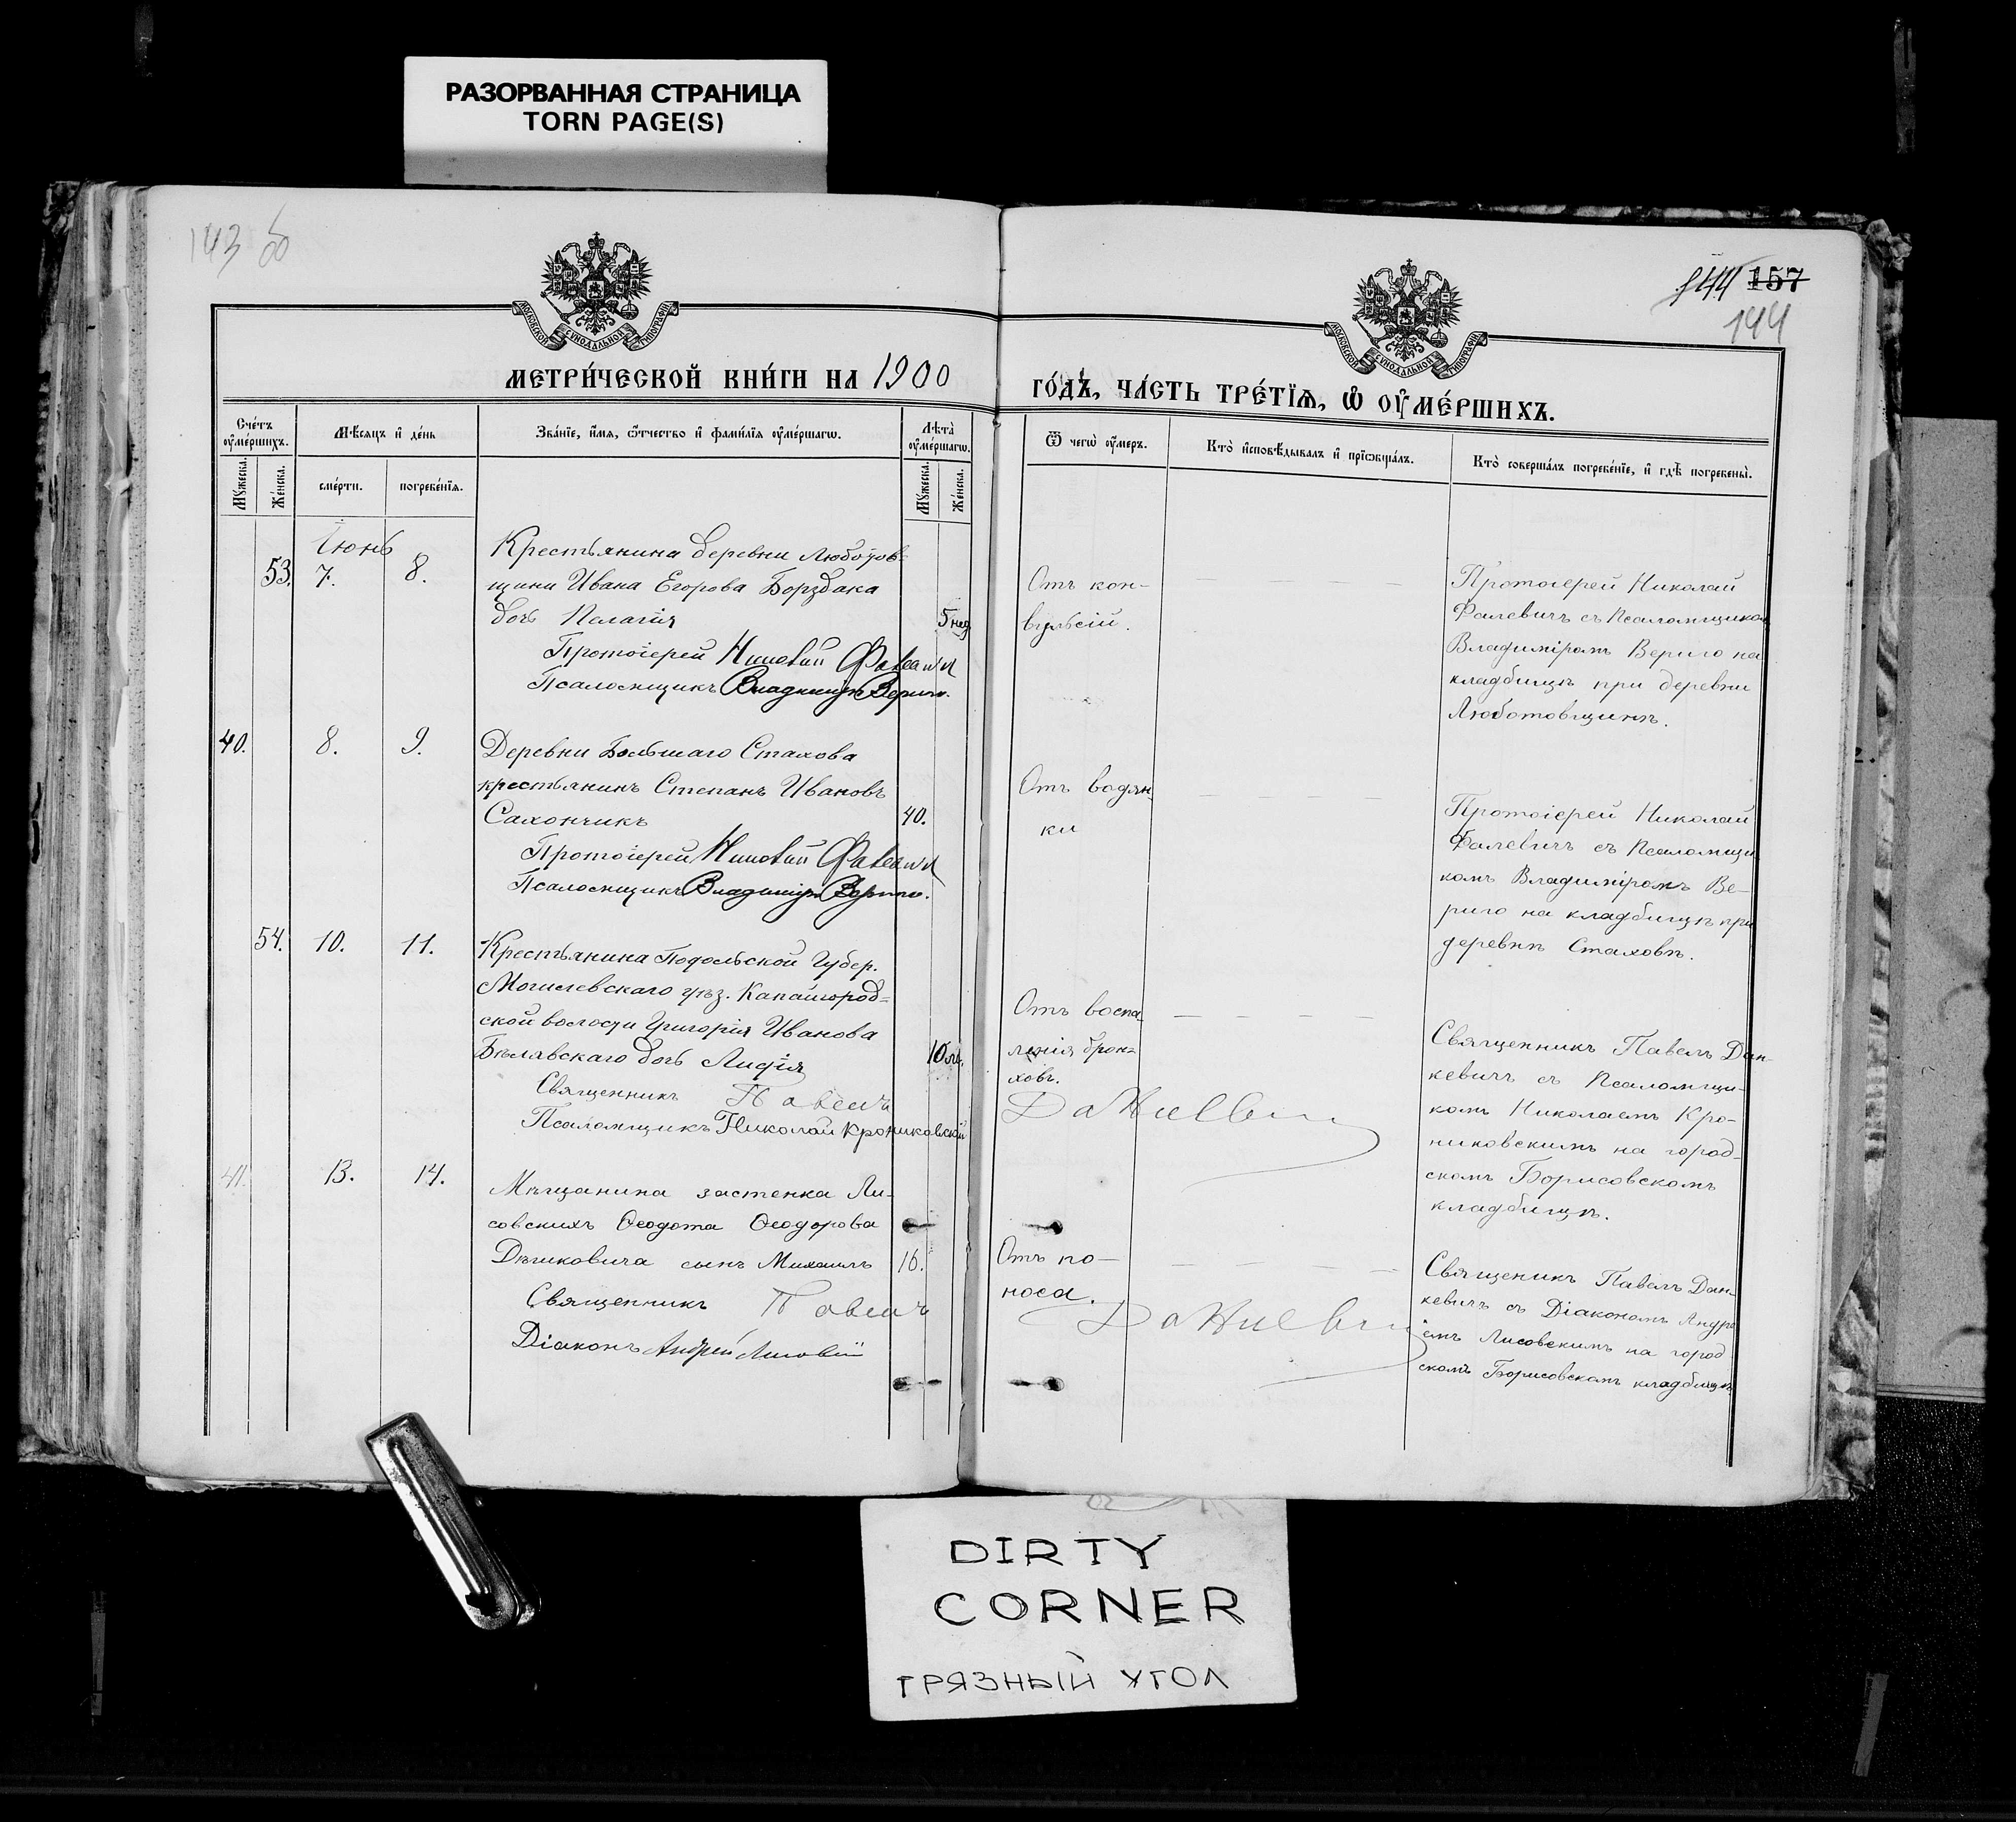 РАЗОРВАННАЯ СТРАНИЦА
TORN PAGE(S)
143 об
144 157
144
МОСКОВСКОЙ СѴНОДАЛЬНОЙ ТИПОГРАФІИ
МОСКОВСКОЙ СѴНОДАЛЬНОЙ ТИПОГРАФІИ
МЕТРИ́ЧЕСКОЙ КНИ́ГИ НА 1900
ГО́ДЪ, ЧА́СТЬ ТРЕ́ТЇѦ, Ѡ҆ ОУ҆МЕ́РШИХЪ.
Сче́тъ оу҆ме́ршихъ.
Мꙋ́жеска.
Же́нска.
Мѣ́сѧцъ и҆ де́нь
сме́рти.
погребе́нїѧ.
Зва́нїе, и҆́мѧ, ѻ҆́тчество и҆ фами́лїѧ оу҆ме́ршагѡ.
Лѣ́та оу҆ме́ршагѡ.
Мꙋ́жеска.
Же́нска.
Ѿ чегѡ̀ оу҆́меръ.
Кто̀ и҆сповѣ́дывалъ и҆ прїѡбща́лъ.
Кто̀ соверша́лъ погребе́нїе, и҆ гдѣ̀ погребены̀.
Іюнь
53. 7. 8.
Крестьянина деревни Любатов-
щини Ивана Егорова Борздака
дочь Пелагія
5 нед
Протоіерей Николай Фалевичъ
Псаломщикъ Владиміръ Вериго.
Отъ кон-
вульсій.
Протоіерей Николай
Фалевичъ съ Псаломщикомъ
Владиміромъ Вериго на
кладбищѣ при деревни
Люботовщинѣ.
40. 8. 9.
Деревни Большаго Стахова
крестьянинъ Степанъ Ивановъ
Сахончикъ
40.
Протоіерей Николай Фалевичъ
Псаломщикъ Владиміръ Вериго.
Отъ водян-
ки
Протоіерей Николай
Фалевичъ съ Псаломщи
комъ Владиміромъ Ве-
риго на кладбищѣ при
деревнѣ Стаховѣ.
54. 10. 11.
Крестьянина Подольской Губер.
Могилевскаго уѣз. Капайгород-
ской волости Григорія Иванова
Бѣлявскаго дочь Лидія
10 м.
Священникъ Павелъ Данкевичъ
Псаломщикъ Николай Крониковскій
Отъ воспа-
ленія брон-
ховъ.
Священникъ Павелъ Дан-
кевичъ съ Псаломщи-
комъ Николаемъ Кро-
никовскимъ на город-
скомъ Борисовскомъ
кладбищѣ.
41. 13. 14.
Мѣщанина застенка Ли-
совскихъ Ѳеодота Ѳеодорова
Дѣшковича сынъ Михаилъ
16.
Священникъ Павелъ Данкевичъ
Діаконъ Андрей Лисовскій
Отъ по-
носа.
Священикъ Павелъ Дан-
кевичъ съ Діакономъ Андре
емъ Лисовскимъ на город
скомъ Борисовскомъ кладбищѣ.
DIRTY
CORNER
ГРЯЗНЫЙ УГОЛ